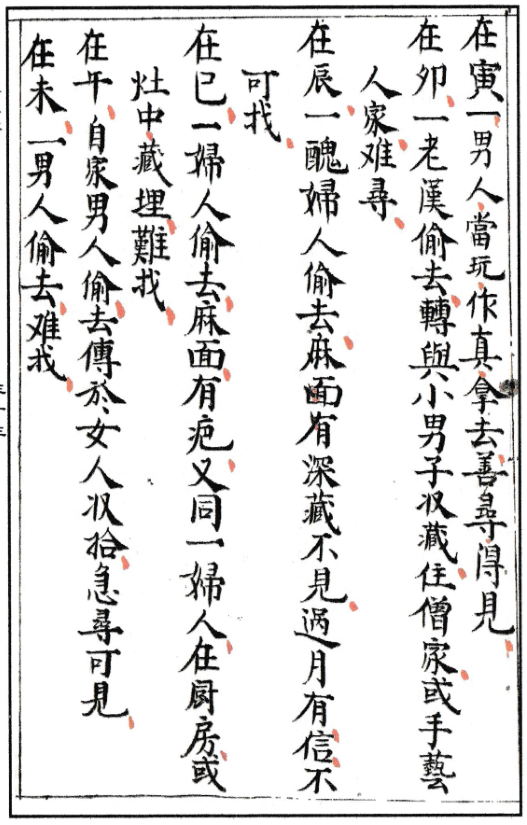 在寅一男人當玩作真拿去善尋得見
在卯一老漢偷去轉與小男子收藏住僧家或手藝
人家难尋
在辰一醜婦人偷去麻面有深藏不見過月有信不
可找
在巳一婦人偷去麻面有疤又同一婦人在厨房或
灶中藏埋難找
在午自家男人偷去傳於女人收拾急尋可見
在未一男人偷去难找